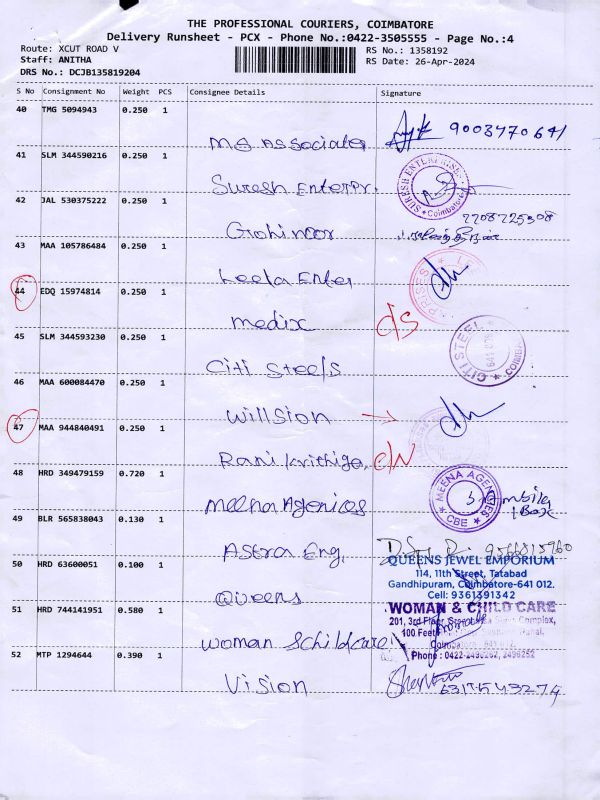 THE PROFESSIONAL COURIERS, COIMBATORE
Delivery Runsheet - PCX - Phone No.:0422-3505555 - Page No.:4
Route: XCUT ROAD V
RS No.: 1358192
Staff: ANITHA
RS Date: 26-Apr-2024
DRS No.: DCJB135819204
S No Consignment No Weight PCS Consignee Details Signature
40 TMG 5094943 0.250 1
MS Associates 9003770641
41 SLM 344590216 0.250 1
Suresh Enterpr. SURESH ENTERPRISES Coimbatore
42 JAL 530375222 0.250 1
2208725308
Grohinoor
43 MAA 105786484 0.250 1
Leela Enter
44 EDQ 15974814 0.250 1
Medix c/s
45 SLM 344593230 0.250 1
Citi Steels CITI STEEL
46 MAA 600084470 0.250 1
Willsion →
47 MAA 944840491 0.250 1
Rani krithiga, C/N
48 HRD 349479159 0.720 1
Meena Agencies MEENA AGENCIES CBE
49 BLR 565838043 0.130 1
Astra Eng. 9566815960
50 HRD 63600051 0.100 1
QUEENS JEWEL EMPORIUM
114, 11th Street, Tatabad
Gandhipuram, Coimbatore-641 012.
Cell: 9361391342
Queens
51 HRD 744141951 0.580 1
WOMAN & CHILD CARE
201, 3rd Floor, Complex,
100 Feet
Woman Schildcare
Phone : 0422-2496262, 2496252
52 MTP 1294644 0.390 1
Vision